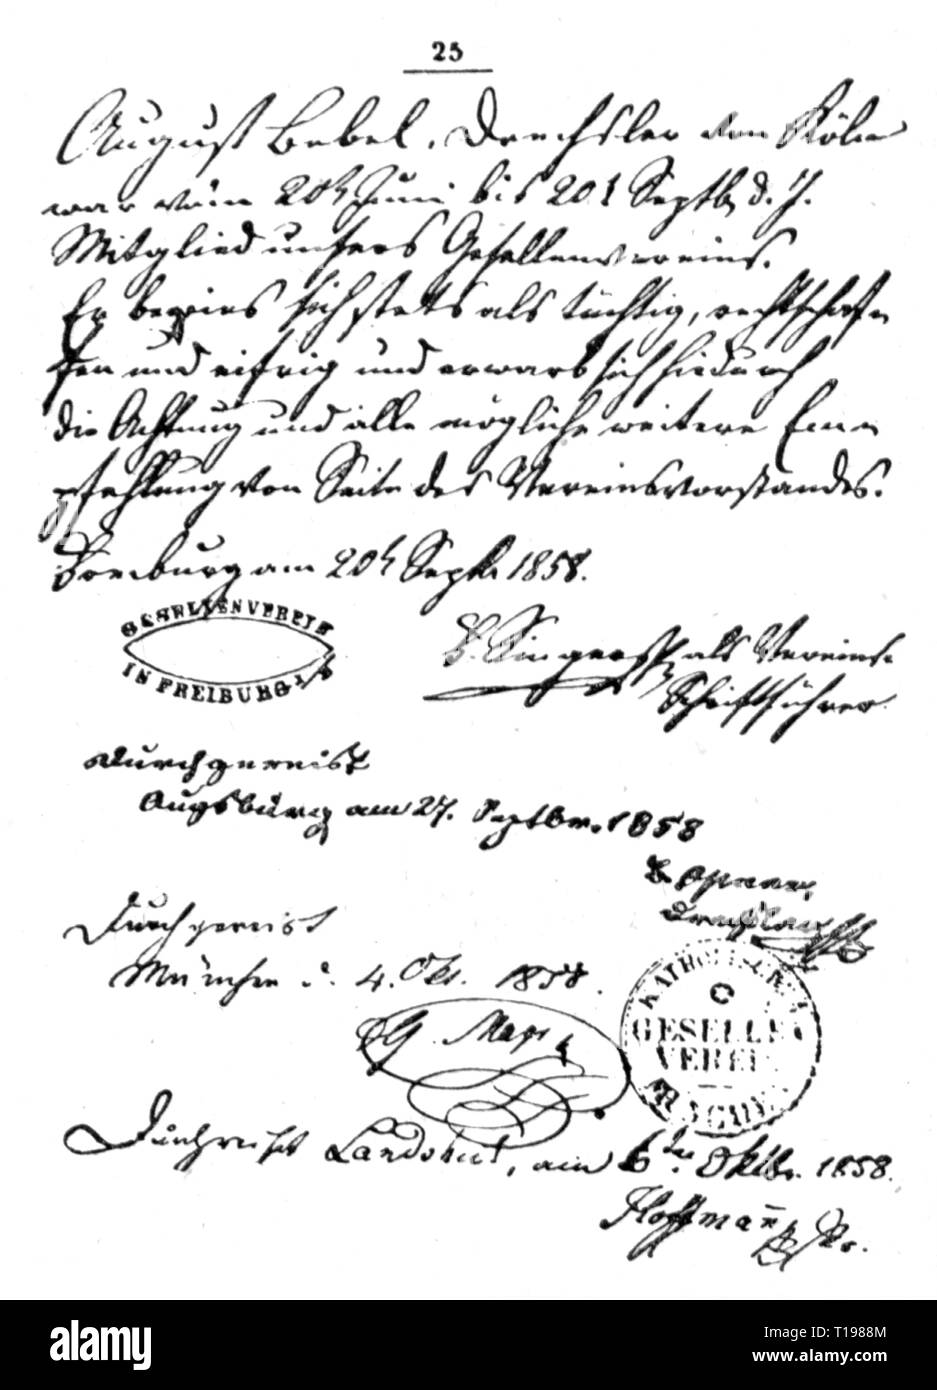 25
August Bebel, Drechsler von Köln
war vom 20t Juni bis 20t Septb. d. J.
Mitglied unsers Gesellenvereins.
Er bewies sich stets als tüchtig, rechtschaf-
fen und eifrig und erwarb sich hiedurch
die Achtung und alle mögliche weitere Em-
pfehlung von Seite des Vereinsvorstandes.
Freiburg am 20t Sept. 1858.
GESELLENVEREIN
IN FREIBURG i/B
als Vereins-
Schriftführer.
Durchgereist
Augsburg am 27. Septbr. 1858
Durchgereist
München d. 4. Okt. 1858.
KATHOL
GESELLEN
VEREIN
MÜNCHEN
G. Mayr
Durchreist Landshut, am 6ten Oktbr. 1858.
Hoffmann
alamy
a
Image ID: T1988M
www.alamy.com